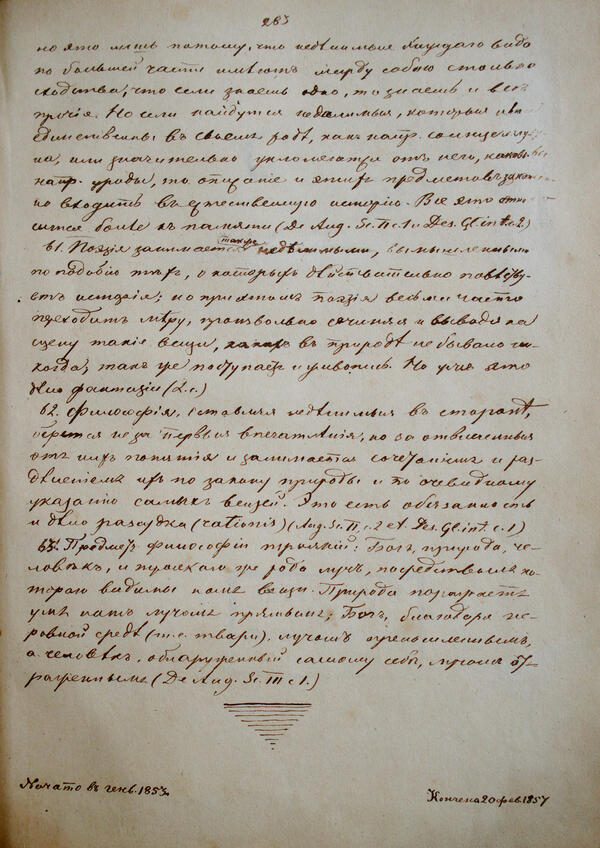 283
но это лишь потому, что недѣлимыя каждаго вида
по большей части имѣютъ между собою столько
сходства, что если знаешь одно, то знаешь и всѣ
прочія. Но если найдутся недѣлимыя, которыя
единственны въ своемъ родѣ, какъ напр. солнце и
на, или значительно уклоняются отъ него, каковы
напр. уроды, то описаніе и этихъ предметовъ закон-
но входитъ въ естественную исторію. Все это отно-
сится болѣе къ памяти (De Aug. Sc. II c. 1 и Des. Gl. int. c. 2)
61. Поэзія занимается также недѣлимыми, вымышленными
по подобію тѣхъ, о которыхъ дѣйствительно повѣству-
етъ исторія; но при этомъ поэзія весьма часто
переходитъ мѣру, произвольно сочиняя и выводя на
сцену такія вещи, какихъ въ природѣ не бывало ни-
когда; такъ же поступаетъ и живопись. Но уже это
дѣло фантазіи (L. c.)
62. Философія, оставляя недѣлимыя въ сторонѣ,
берется не за первыя впечатлѣнія, но за отвлеченныя
отъ нихъ понятія и занимается сочетаніемъ и раз-
дѣленіемъ ихъ по закону природы и по очевидному
указанію самыхъ вещей. Это есть обязанность
и дѣло разсудка (rationis) (Aug. Sc. II, c. 2 et Des. Gl. int. c. 1)
63. Предметъ философіи троякій: Богъ, природа, че-
ловѣкъ, и троякаго же рода лучъ, посредствомъ ко-
тораго видимы намъ вещи. Природа поражаетъ
умъ нашъ лучомъ прямымъ; Богъ, благодаря не-
ровной средѣ (т. е. твари), лучомъ преломленнымъ,
а человѣкъ, обнаруженный самому себѣ, лучомъ от-
раженнымъ (De Aug. Sc. III c. 1.)
Начато въ генв. 1853.
Кончена 20 фев. 1857